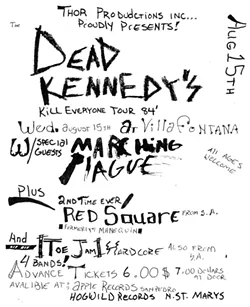 THOR PRODUCTIONS INC...
PROUDLY PRESENTS!
THE
DEAD
KENNEDY'S
AUG 15TH
KILL EVERYONE TOUR 84'
Wed. august 15th AT Villa FONTANA
W/SPECIAL GUESTS MARCHING PLAGUE
All AGES WELCOME
Plus 2ND TIME EVER!
RED SQUARE FROM S.A.
FORMERLY MANEQUIN
And TOE JAM HARDCORE ALSO FROM S.A.
4 BANDS!
ADVANCE TICKETS 6.00$ 7.00 DOLLARS AT DOOR
AVALIBLE AT: APPLE RECORDS SAN PEDRO
HOGWILD RECORDS N. ST. MARYS